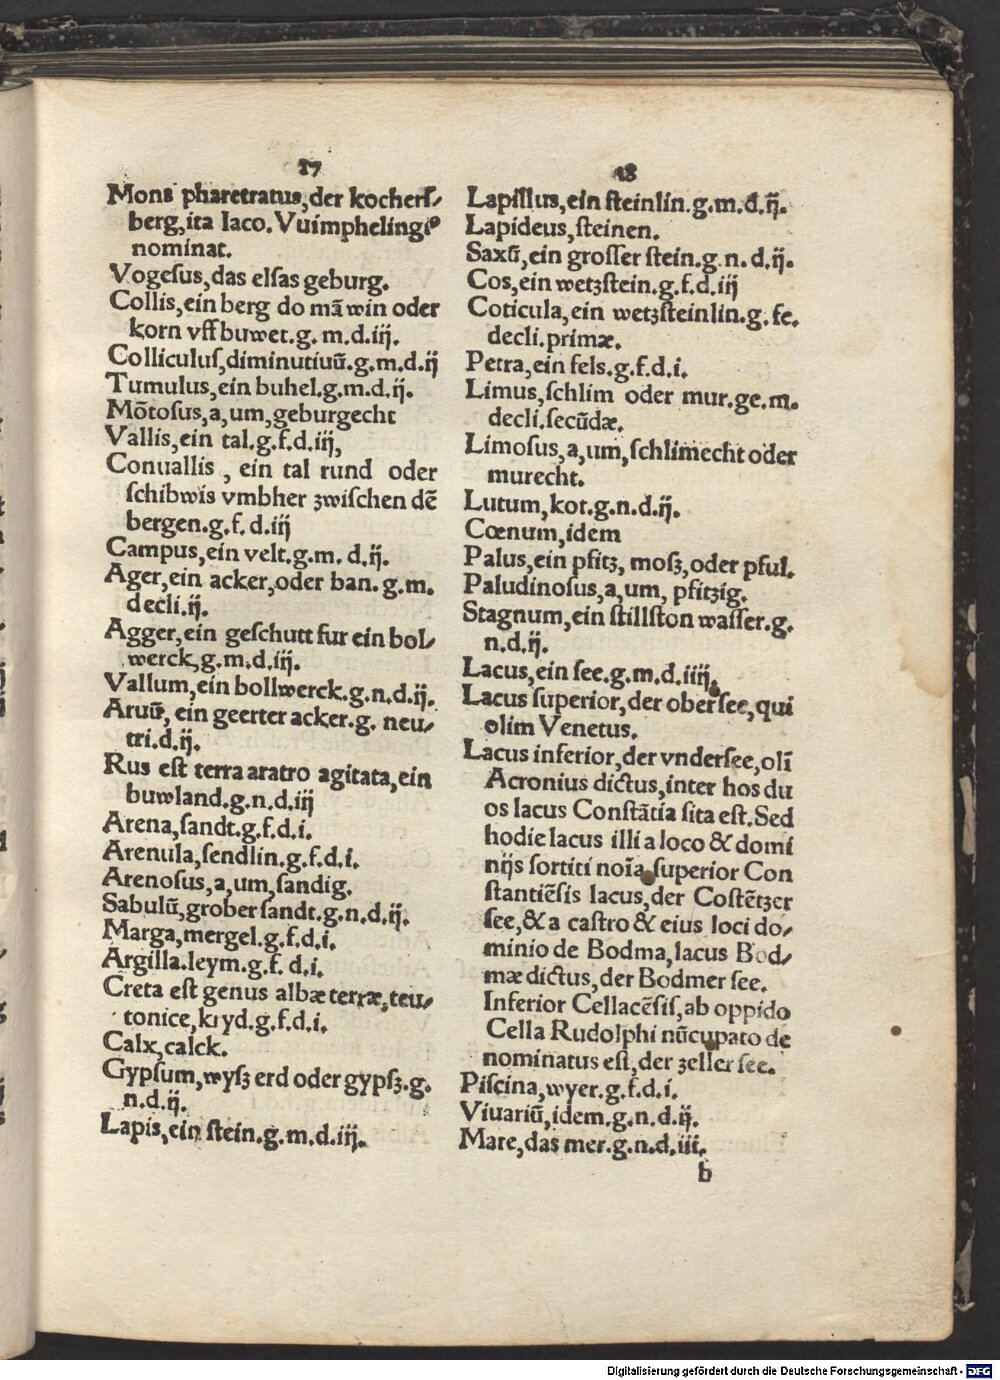 17
Mons pharetratus,der kocherſ⸗
berg,ita Iaco.Vuimphelingiꝰ
nominat.
Vogeſus,das elſas geburg.
Collis,ein berg do mā win oder
korn vff buwet.g. m.d.iij.
Colliculuſ,diminutiuū.g.m.d.ij
Tumulus,ein buhel.g.m.d.ij.
Mōtoſus,a,um,geburgecht
Vallis,ein tal.g.f.d.iij,
Conuallis , ein tal rund oder
ſchibwis vmbher zwiſchen dē
bergen.g.f.d.iij
Campus,ein velt.g.m. d.ij.
Ager,ein acker,oder ban.g.m.
decli.ij.
Agger,ein geſchutt fur ein bol⸗
werck,g.m.d.iij.
Vallum,ein bollwerck.g.n.d.ij.
Aruū, ein geerter acker.g. neu⸗
tri.d.ij.
Rus eſt terra aratro agitata,ein
buwland.g.n.d.iij
Arena,ſandt.g.f.d.i.
Arenula,ſendlin.g.f.d.i.
Arenoſus,a,um,ſandig.
Sabulū,grober ſandt.g.n.d.ij.
Marga,mergel.g.f.d.i.
Argilla.leym.g.f. d.i.
Creta eſt genus albæ terræ,teu⸗
tonice,kryd.g.f.d.i.
Calx,calck.
Gypſum,wyſz erd oder gypſz.g.
n.d.ij.
Lapis,ein ſtein.g.m.d.iij.
18
Lapillus,ein ſteinlin.g.m.d.ij.
Lapideus,ſteinen.
Saxū,ein groſſer ſtein.g.n.d.ij.
Cos,ein wetzſtein.g.f.d.iij
Coticula,ein wetzſteinlin.g.fe.
decli.primæ.
Petra,ein fels.g.f.d.i.
Limus,ſchlim oder mur.ge.m.
decli.ſecūdæ.
Limoſus,a,um,ſchlimecht oder
murecht.
Lutum,kot.g.n.d.ij.
Cœnum,idem
Palus,ein pfitz, moſz,oder pful.
Paludinoſus,a,um, pfitzig.
Stagnum,ein ſtillſton waſſer.g.
n.d.ij.
Lacus,ein ſee.g.m.d.iiij.
Lacus ſuperior,der oberſee,qui
olim Venetus.
Lacus inferior,der vnderſee,olī
Acronius dictus,inter hos du
os lacus Conſtātia ſita eſt.Sed
hodie lacus illi a loco & domi
nijs ſortiti noīa,ſuperior Con
ſtantiēſis lacus,der Coſtētzer
ſee,& a caſtro & eius loci do⸗
minio de Bodma,lacus Bod⸗
mæ dictus,der Bodmer ſee.
Inferior Cellacēſis,ab oppido
Cella Rudolphi nūcupato de
nominatus eſt,der zeller ſee.
Piſcina,wyer.g.f.d.i.
Viuariū,idem.g.n.d.ij.
Mare,das mer.g.n.d.iii.
b
Digitalisierung gefördert durch die Deutsche Forschungsgemeinschaft - DFG